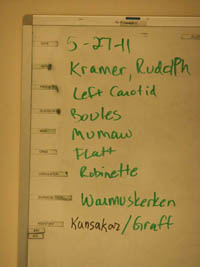 5-27-11
Kramer, Rudolph
Left Carotid
Boules
Mumaw
Flatt
Robinette
Warmuskerken
Kansakar/Graft